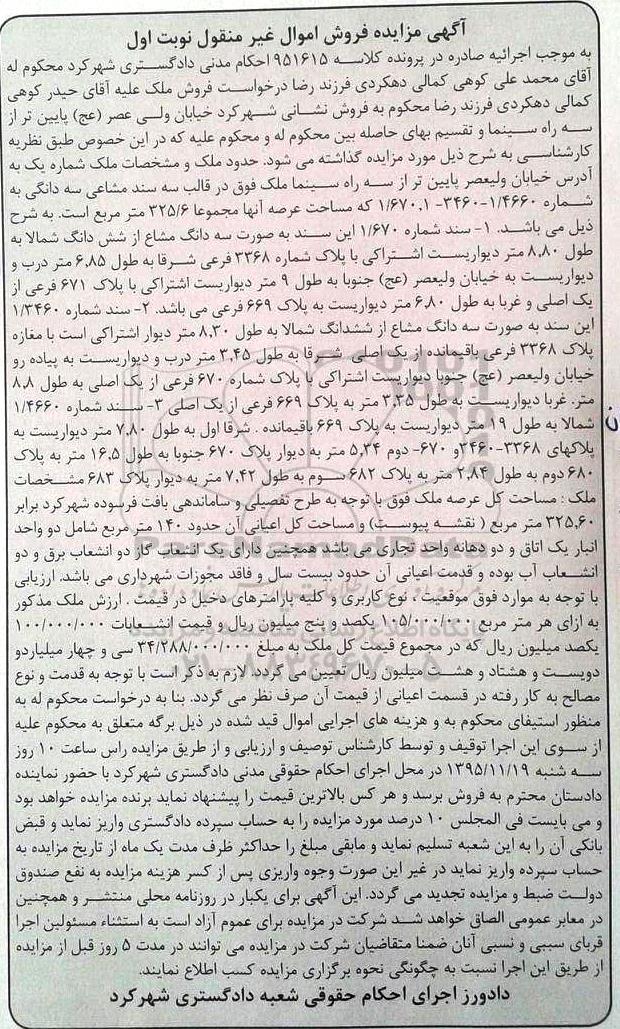 آگهی مزایده فروش اموال غیر منقول نوبت اول
به موجب اجرائیه صادره در پرونده کلاسه ۹۵۱۶۱۵ احکام مدنی دادگستری شهرکرد محکوم له
آقای محمد علی کوهی کمالی دهکردی فرزند رضا درخواست فروش ملک علیه آقای حیدر کوهی
کمالی دهکردی فرزند رضا محکوم به فروش نشانی شهرکرد خیابان ولی عصر (عج) پایین تر از
سه راه سینما و تقسیم بهای حاصله بین محکوم له و محکوم علیه که در این خصوص طبق نظریه
کارشناسی به شرح ذیل مورد مزایده گذاشته می شود. حدود ملک و مشخصات ملک شماره یک به
آدرس خیابان ولیعصر پایین تر از سه راه سینما ملک فوق در قالب سه سند مشاعی سه دانگی به
شماره ۱/۴۶۶۰-۳۴۶۰- ۱/۶۷۰.۱ که مساحت عرصه آنها مجموعا ۳۲۵/۶ متر مربع است. به شرح
ذیل می باشد. ۱- سند شماره ۱/۶۷۰ این سند به صورت سه دانگ مشاع از شش دانگ شمالا به
طول ۸,۸۰ متر دیواریست اشتراکی با پلاک شماره ۳۳۶۸ فرعی شرقا به طول ۶,۸۵ متر درب و
دیواریست به خیابان ولیعصر (عج) جنوبا به طول ۹ متر دیواریست اشتراکی با پلاک ۶۷۱ فرعی از
یک اصلی و غربا به طول ۶,۸۰ متر دیواریست به پلاک ۶۶۹ فرعی می باشد. ۲- سند شماره ۱/۳۴۶۰
این سند به صورت سه دانگ مشاع از ششدانگ شمالا به طول ۸,۳۰ متر دیوار اشتراکی است با مغازه
پلاک ۳۳۶۸ فرعی باقیمانده از یک اصلی شرقا به طول ۳,۴۵ متر درب و دیواریست به پیاده رو
خیابان ولیعصر (عج) جنوبا دیواریست اشتراکی با پلاک شماره ۶۷۰ فرعی از یک اصلی به طول ۸,۸
متر. غربا دیواریست به طول ۳,۲۵ متر به پلاک ۶۶۹ فرعی از یک اصلی ۳- سند شماره ۱/۴۶۶۰
شمالا به طول ۱۹ متر دیواریست به پلاک ۶۶۹ باقیمانده . شرقا اول به طول ۷,۸۰ متر دیواریست به
پلاکهای ۳۳۶۸-۳۴۶۰ و ۶۷۰- دوم ۵,۲۴ متر به دیوار پلاک ۶۷۰ جنوبا به طول ۱۶,۵ متر به پلاک
۶۸۰ دوم به طول ۲,۸۴ متر به پلاک ۶۸۲ سوم به طول ۷,۴۲ متر به دیوار پلاک ۶۸۳ مشخصات
ملک : مساحت کل عرصه ملک فوق با توجه به طرح تفصیلی و ساماندهی بافت فرسوده شهرکرد برابر
۳۲۵,۶۰ متر مربع ( نقشه پیوست) و مساحت کل اعیانی آن حدود ۱۴۰ متر مربع شامل دو واحد
انبار یک اتاق و دو دهانه واحد تجاری می باشد همچنین دارای یک انشعاب گاز دو انشعاب برق و دو
انشعاب آب بوده و قدمت اعیانی آن حدود بیست سال و فاقد مجوزات شهرداری می باشد. ارزیابی
با توجه به موارد فوق موقعیت ، نوع کاربری و کلیه پارامترهای دخیل در قیمت . ارزش ملک مذکور
به ازای هر متر مربع ۱۰۵/۰۰۰/۰۰۰ یکصد و پنج میلیون ریال و قیمت انشعابات ۱۰۰/۰۰۰/۰۰۰
یکصد میلیون ریال که در مجموع قیمت کل ملک به مبلغ ۳۴/۲۸۸/۰۰۰/۰۰۰ سی و چهار میلیاردو
دویست و هشتاد و هشت میلیون ریال تعیین می گردد. لازم به ذکر است با توجه به قدمت و نوع
مصالح به کار رفته در قسمت اعیانی از قیمت آن صرف نظر می گردد. بنا به درخواست محکوم له به
منظور استیفای محکوم به و هزینه های اجرایی اموال قید شده در ذیل برگه متعلق به محکوم علیه
از سوی این اجرا توقیف و توسط کارشناس توصیف و ارزیابی و از طریق مزایده راس ساعت ۱۰ روز
سه شنبه ۱۳۹۵/۱۱/۱۹ در محل اجرای احکام حقوقی مدنی دادگستری شهرکرد با حضور نماینده
دادستان محترم به فروش برسد و هر کس بالاترین قیمت را پیشنهاد نماید برنده مزایده خواهد بود
و می بایست فی المجلس ۱۰ درصد مورد مزایده را به حساب سپرده دادگستری واریز نماید و قبض
بانکی آن را به این شعبه تسلیم نماید و مابقی مبلغ را حداکثر ظرف مدت یک ماه از تاریخ مزایده به
حساب سپرده واریز نماید در غیر این صورت وجوه واریزی پس از کسر هزینه مزایده به نفع صندوق
دولت ضبط و مزایده تجدید می گردد. این آگهی برای یکبار در روزنامه محلی منتشر و همچنین
در معابر عمومی الصاق خواهد شد شرکت در مزایده برای عموم آزاد است به استثناء مسئولین اجرا
قربای سببی و نسبی آنان ضمنا متقاضیان شرکت در مزایده می توانند در مدت ۵ روز قبل از مزایده
از طریق این اجرا نسبت به چگونگی نحوه برگزاری مزایده کسب اطلاع نمایند.
دادورز اجرای احکام حقوقی شعبه دادگستری شهرکرد